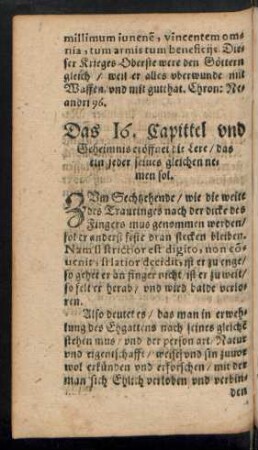 millimum iunenē, vincentem om⸗
nia, tum armis tum beneficijs Die⸗
ser Krieges⸗Oberste were den Göttern
gleich / weil er alles vberwunde mit
Waffen, vnd mit gutthat. Chron: Ne⸗
andri 96.
Das 16. Capittel vnd
Geheimnis eröffnet die Lere / das
ein jeder seines gleichen ne⸗
men sol.
ZVm Sechtzehende / wie die weite
des Trauringes nach der dicke des
Fingers mus genommen werden /
sol er anders feste dran stecken bleiben.
Nam si strictior est digito, non cō⸗
uenit, si latior decidit, ist er zu enge /
so gehet er an finger nicht, ist er zu weit /
so felt er herab / vnd wird balde verlo⸗
ren.
Also deutet es / das man in erweh⸗
lung des Ehgattens nach seines gleichē
stehen mus / vnd der person art / Natur
vnd eigenschafft / weise vnd sin zuuor
wol erkünden vnd erforschen / mit der
man sich Ehlich verloben vnd verbin⸗
den